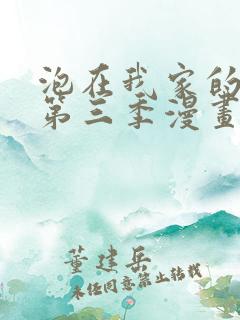 泡在我家的
第三季漫畫
董建岳
未经同意禁止转载